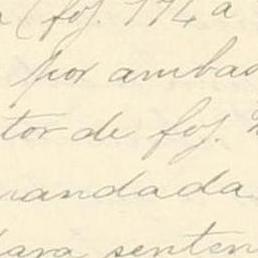 (foj. 174 a
por ambas
tor de foj.
mandada
lara senten